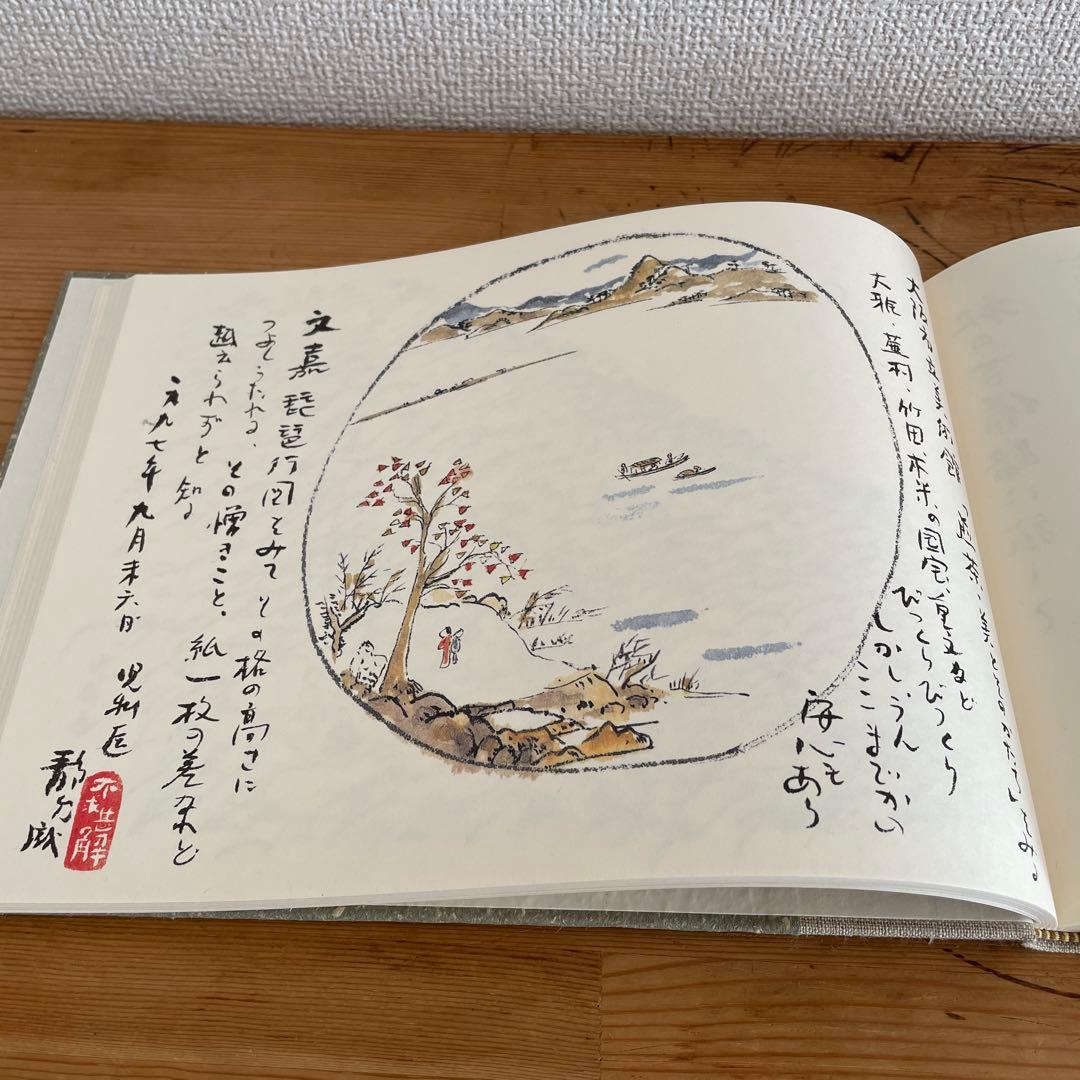 大阪市立美術館「煎茶・美とそのかたち」をみる
大雅・蕪村・竹田・木米の国宝、重文など
びっくりびっくり
しかしうん
ここまでかい
安心も
あり
文嘉 琵琶行図をみて その格の高さに
つよくうたれる、その憎きこと。紙一枚の差など
越えられずと知る
一九九七年九月末六日
不堪解